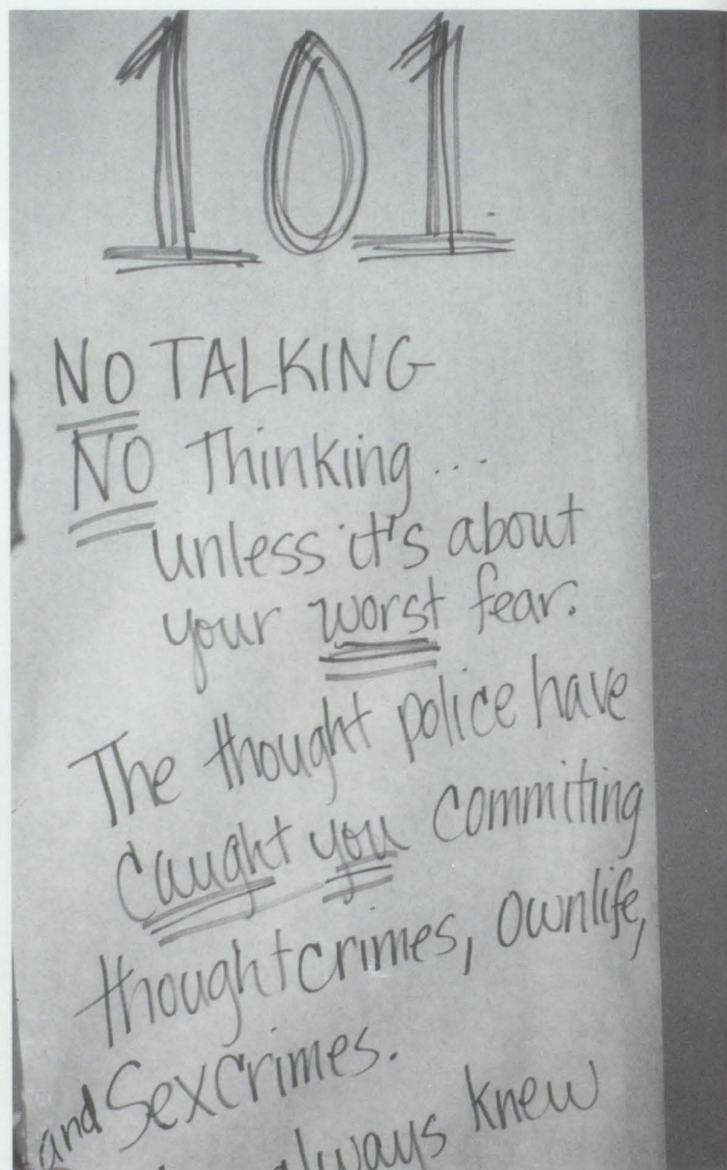 101
NO TALKING
NO Thinking...
unless it's about
your worst fear.
The thought police have
caught you commiting
thoughtcrimes, ownlife,
and Sexcrimes.
always knew